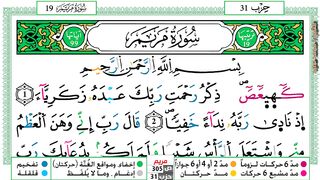 19 سُورَةُ مَرْيَمَ
حِزْب 31
سُورَةُ مَرْيَمَ
آياتها 99
19
بِسْمِ ٱللَّهِ ٱلرَّحْمَٰنِ ٱلرَّحِيمِ
كٓهيعٓصٓ ١ ذِكْرُ رَحْمَتِ رَبِّكَ عَبْدَهُۥ زَكَرِيَّآءَ ٢
إِذْ نَادَىٰ رَبَّهُۥ نِدَآءً خَفِيًّا ٣ قَالَ رَبِّ إِنِّى وَهَنَ ٱلْعَظْمُ
مِنِّى وَٱشْتَعَلَ ٱلرَّأْسُ شَيْبًا وَلَمْ أَكُنۢ بِدُعَآئِكَ رَبِّ
مد 6 حركات لزوماً مد 2 أو 4 أو 6 جوازاً
إخفاء، ومواقع الغنة (حركتان) تفخيم
مد مشبع 6 حركات مد حركتان
إدغام، وما لا يلفظ قلقلة
مريم
305
حزب 31